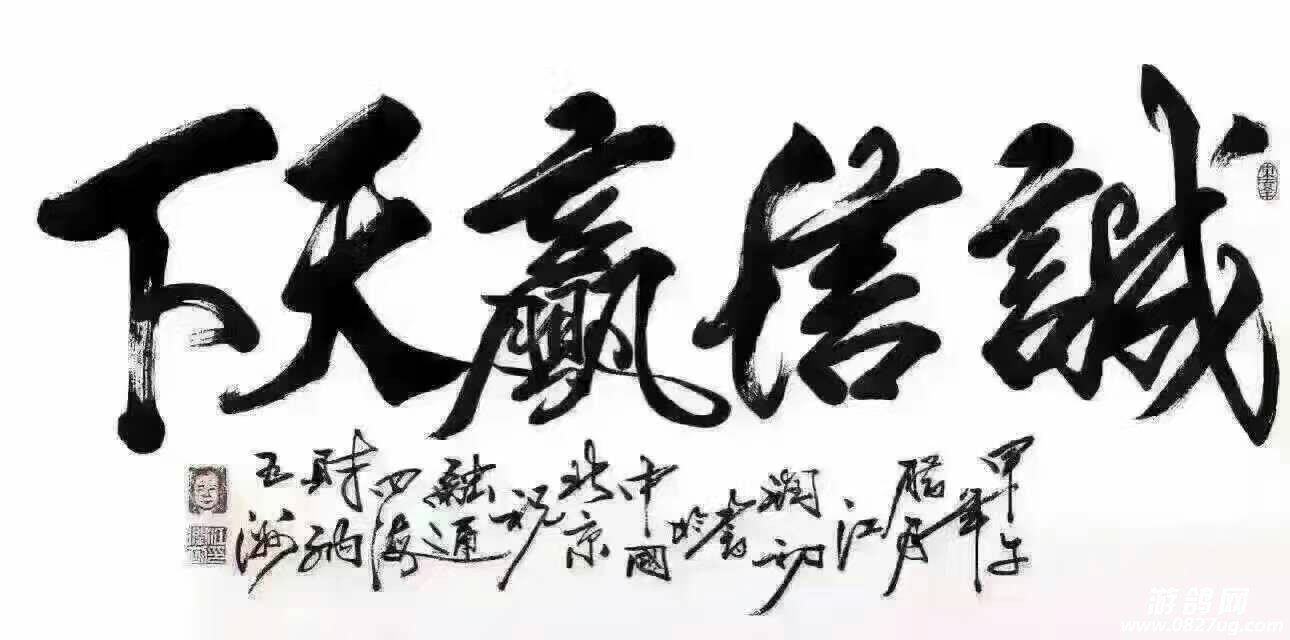 誠信贏天下
甲午
年
臘月
江
潤
初
書
於
中國
北京
祝
融通
四海
財納
五洲
游鸽网
www.0827ug.com